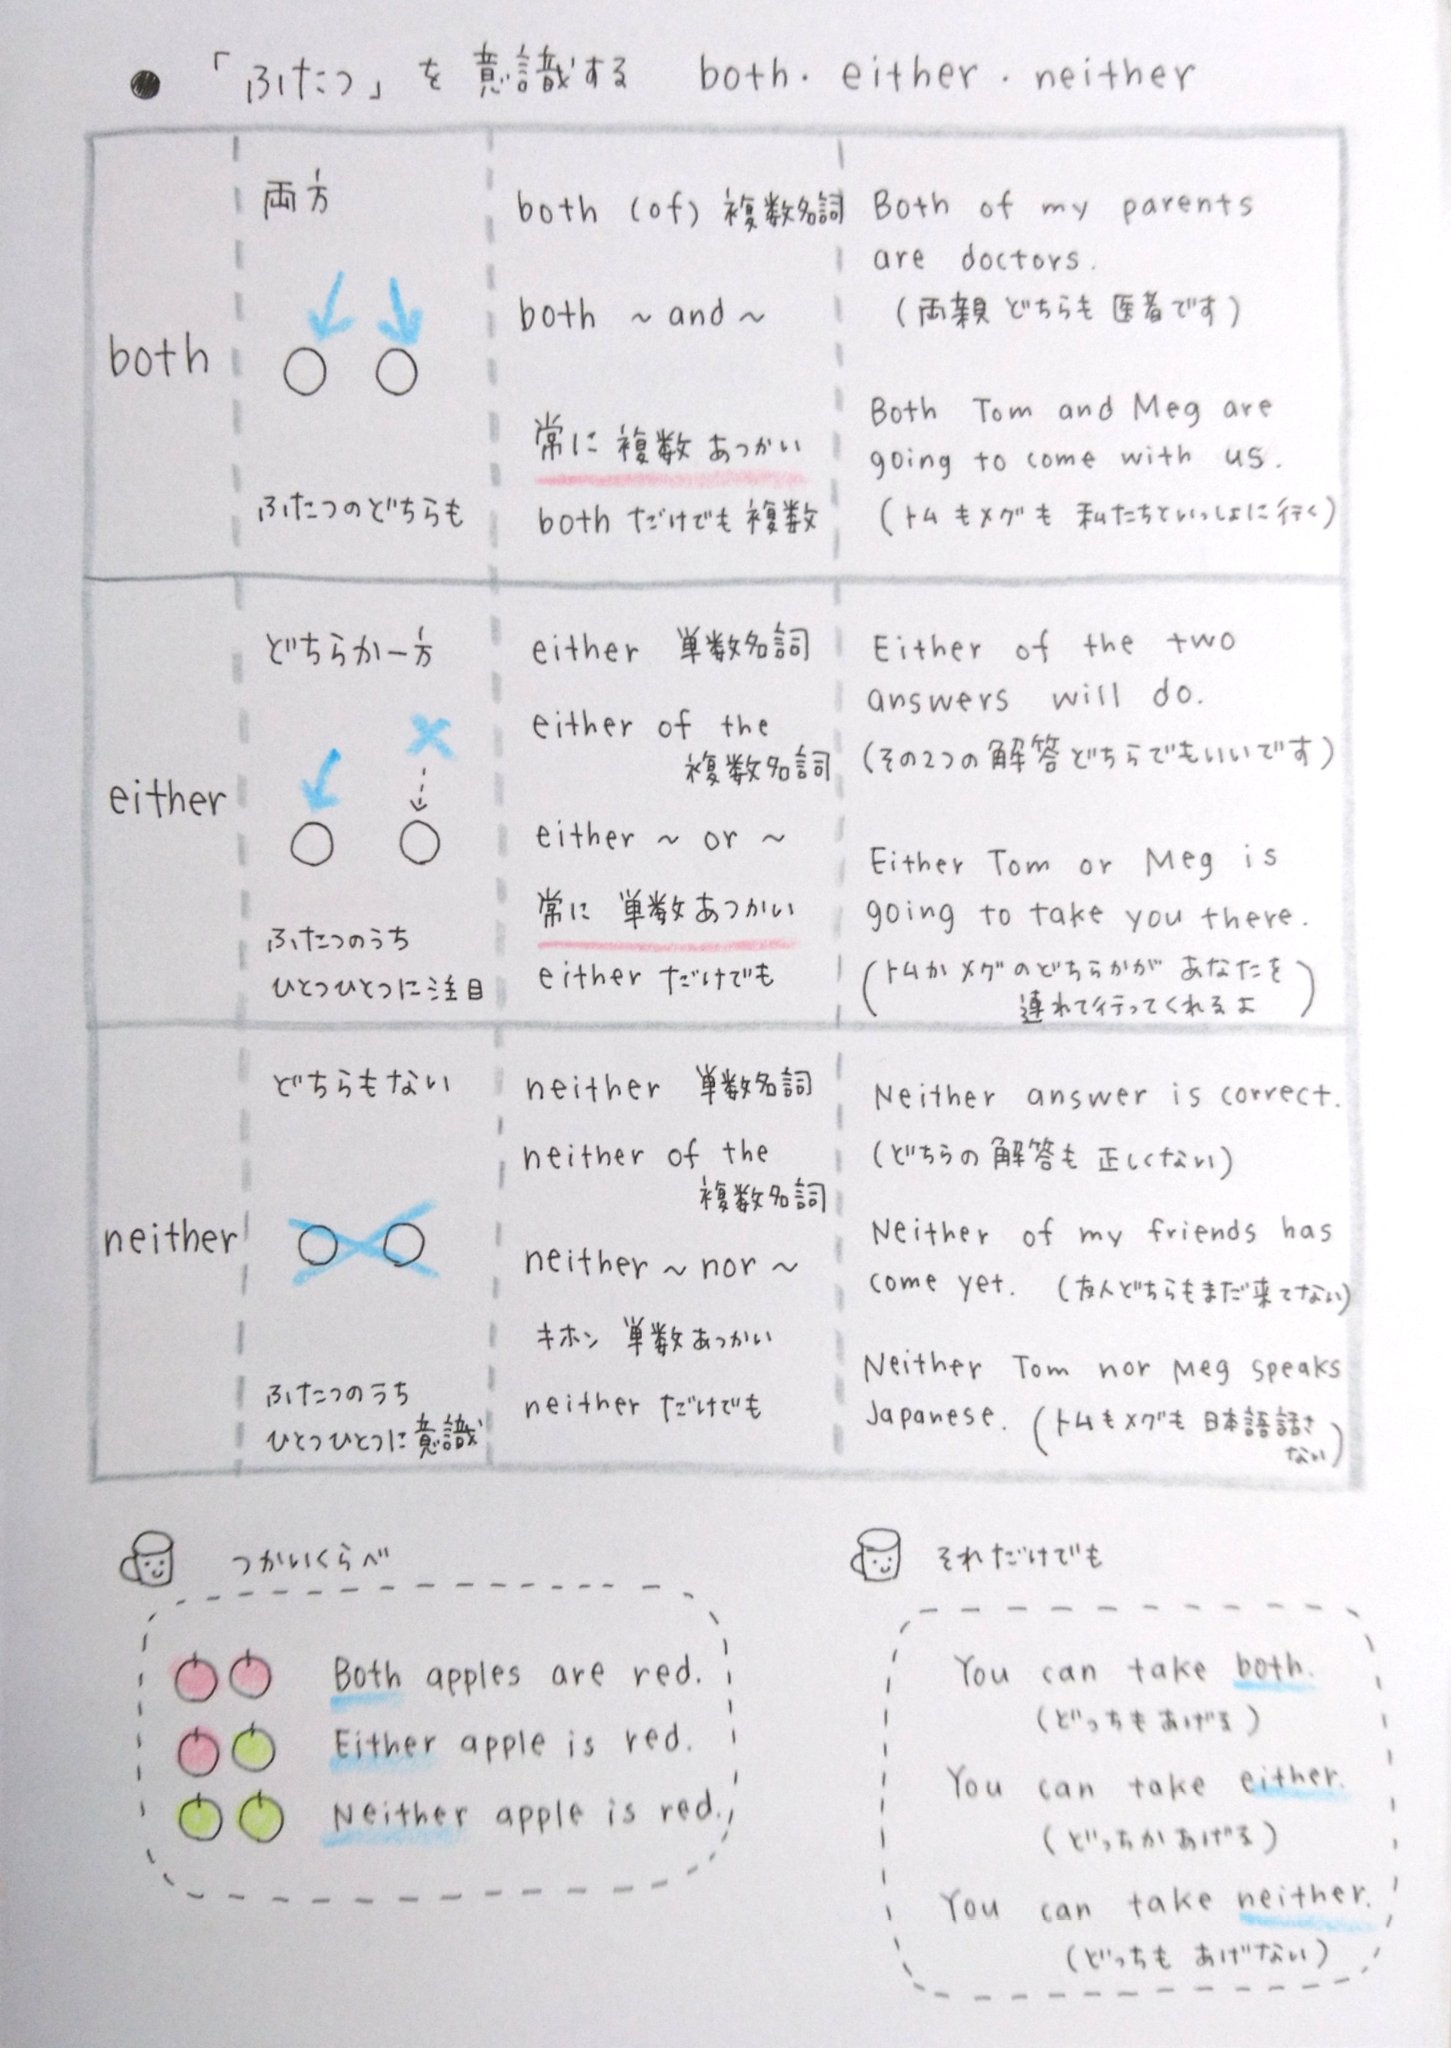 ● 「ふたつ」を意識する both・either・neither
both
両方
ふたつのどちらも
both (of) 複数名詞
both ~ and ~
常に 複数 あつかい
both だけでも 複数
Both of my parents
are doctors.
(両親 どちらも 医者です)
Both Tom and Meg are
going to come with us.
(トムもメグも 私たちといっしょに行く)
either
どちらか一方
ふたつのうち
ひとつひとつに注目
either 単数名詞
either of the
複数名詞
either ~ or ~
常に 単数あつかい
either だけでも
Either of the two
answers will do.
(その2つの解答どちらでもいいです)
Either Tom or Meg is
going to take you there.
(トムかメグのどちらかが あなたを
連れて行ってくれるよ)
neither
どちらもない
ふたつのうち
ひとつひとつに意識
neither 単数名詞
neither of the
複数名詞
neither ~ nor ~
キホン 単数あつかい
neither だけでも
Neither answer is correct.
(どちらの解答も 正しくない)
Neither of my friends has
come yet. (友人どちらもまだ来てない)
Neither Tom nor Meg speaks
Japanese. (トムもメグも 日本語話さ
ない)
つかいくらべ
Both apples are red.
Either apple is red.
Neither apple is red.
それだけでも
You can take both.
(どっちもあげる)
You can take either.
(どっちかあげる)
You can take neither.
(どっちも あげない)